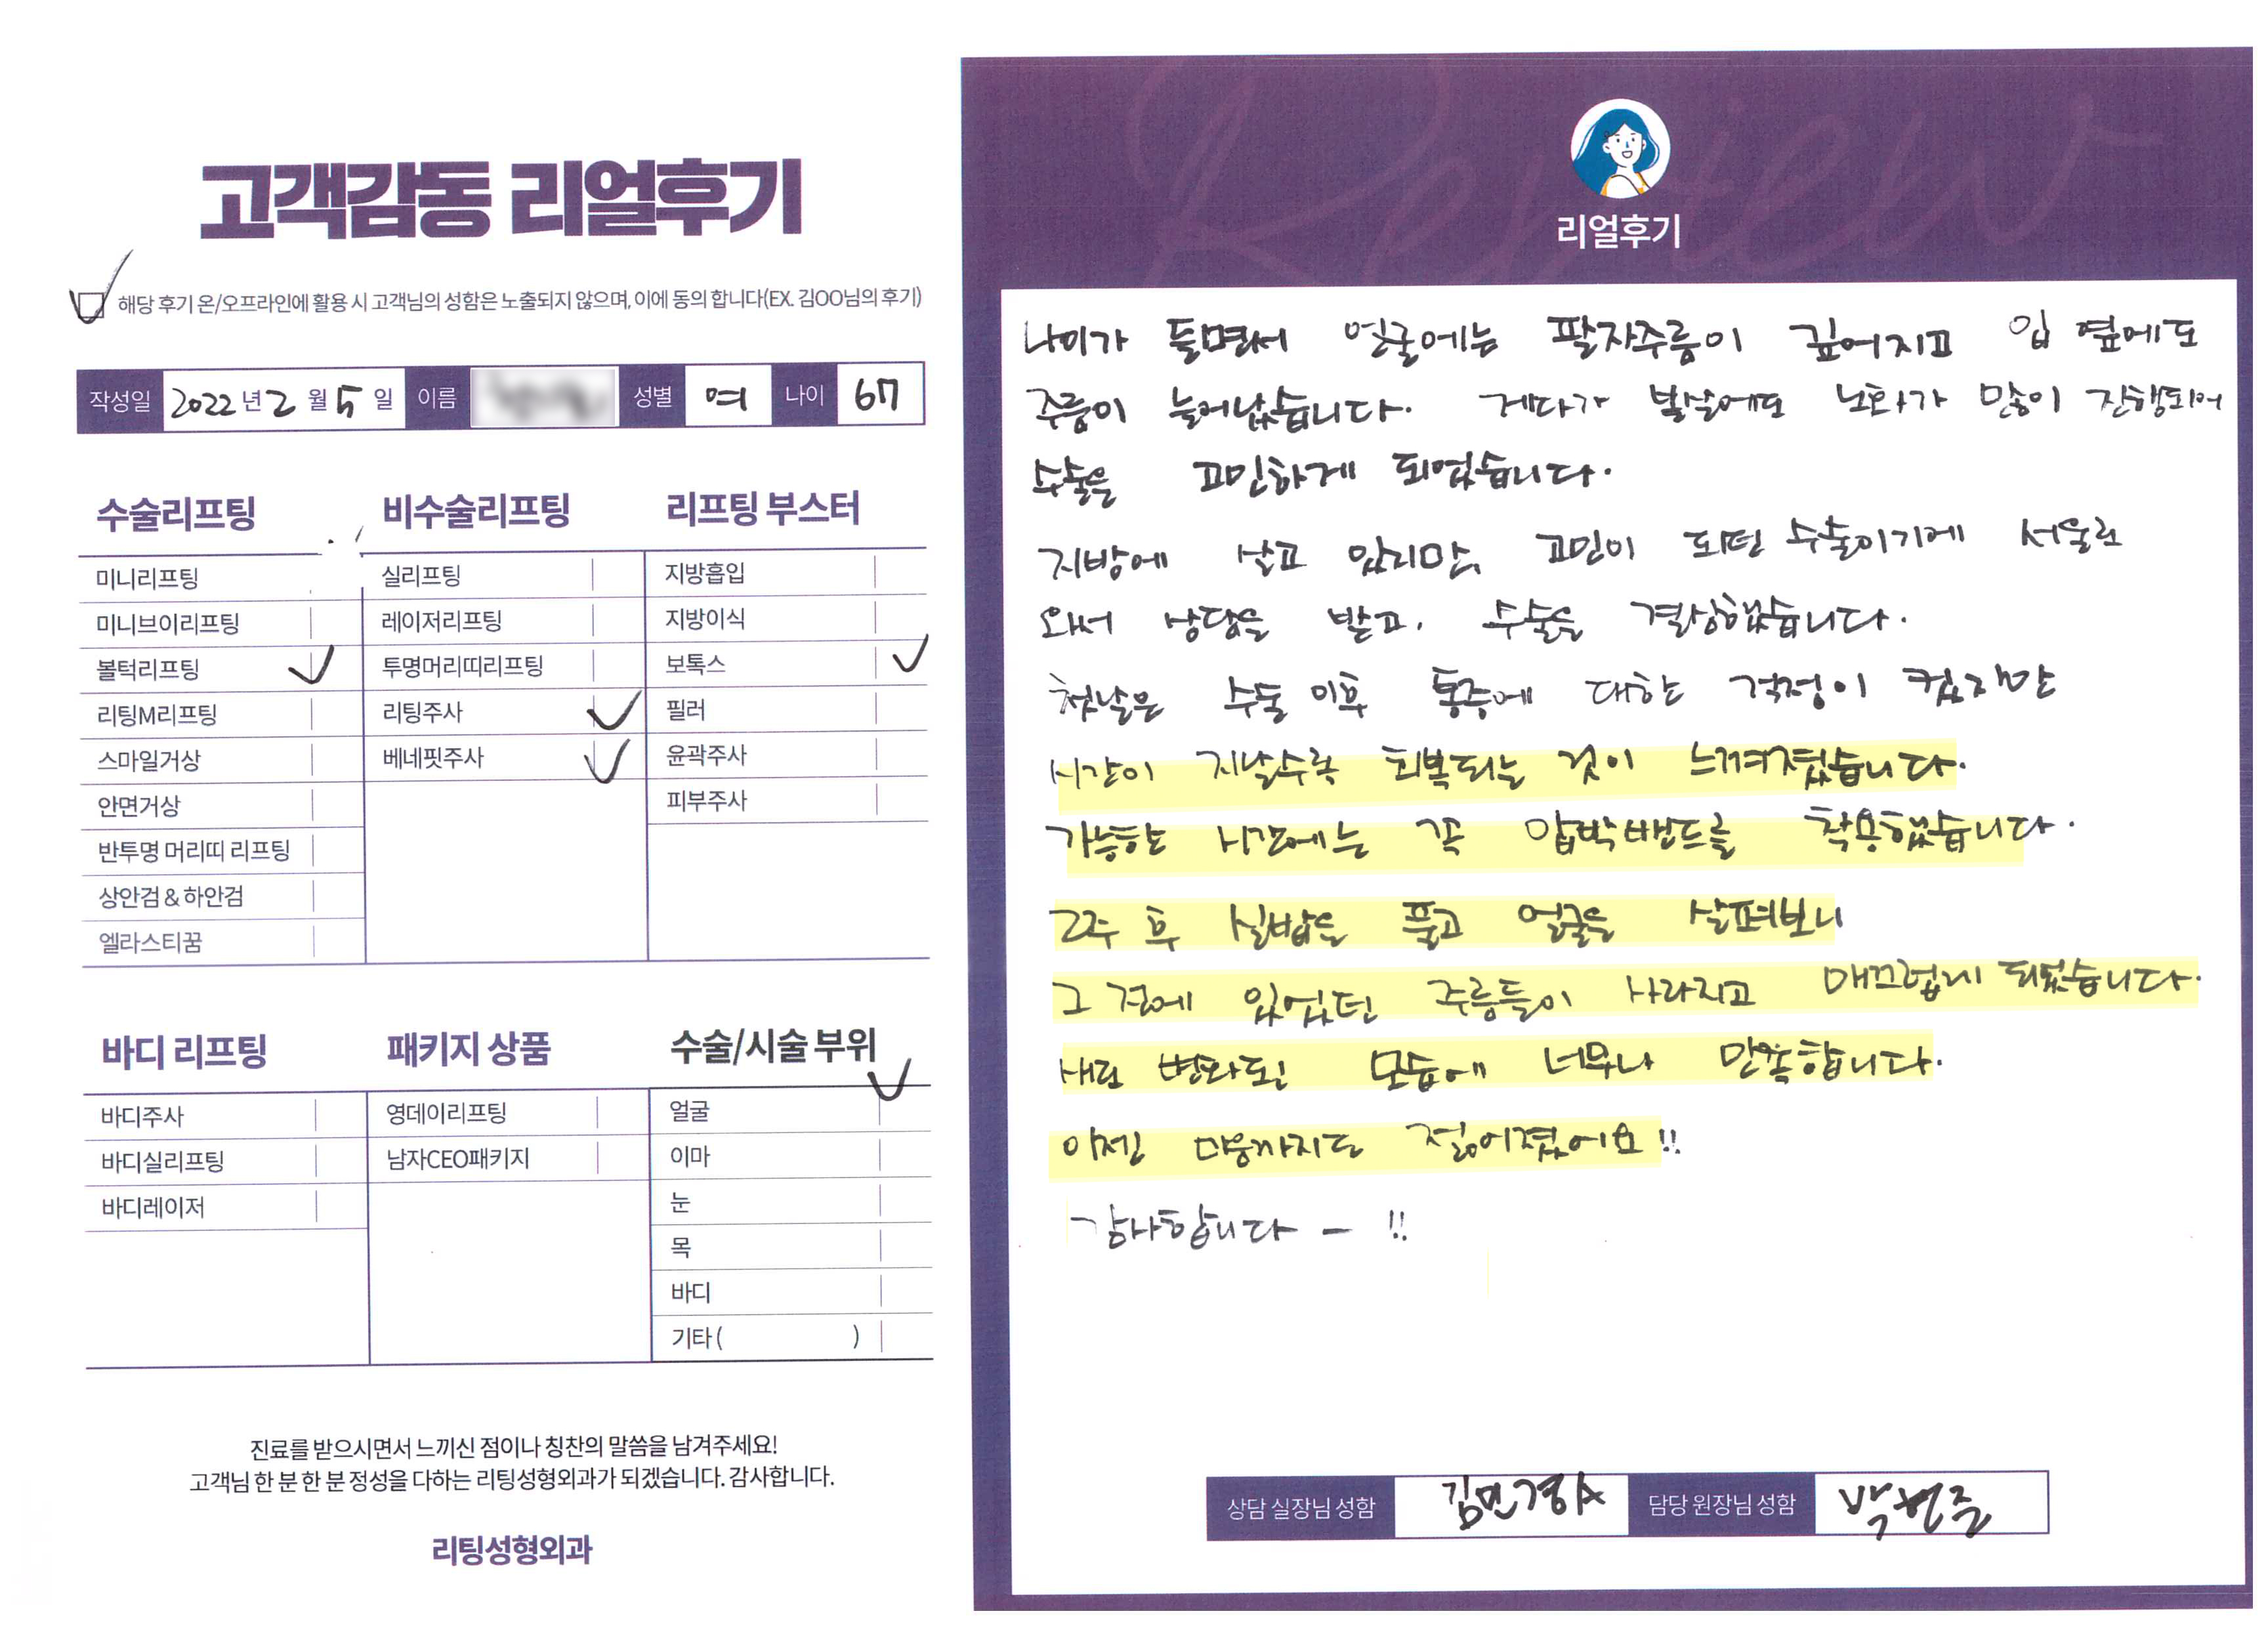 고객감동 리얼후기
해당 후기 온/오프라인에 활용 시 고객님의 성함은 노출되지 않으며, 이에 동의 합니다(EX. 김OO님의 후기)
작성일 2022년 2월 5일 이름 성별 여 나이 67
수술리프팅
미니리프팅
미니브이리프팅
볼턱리프팅
리팅M리프팅
스마일거상
안면거상
반투명 머리띠 리프팅
상안검 & 하안검
엘라스티꿈
비수술리프팅
실리프팅
레이저리프팅
투명머리띠리프팅
리팅주사
베네핏주사
리프팅 부스터
지방흡입
지방이식
보톡스
필러
윤곽주사
피부주사
바디 리프팅
바디주사
바디실리프팅
바디레이저
패키지 상품
영데이리프팅
남자CEO패키지
수술/시술 부위
얼굴
이마
눈
목
바디
기타 ( )
진료를 받으시면서 느끼신 점이나 칭찬의 말씀을 남겨주세요!
고객님 한 분 한 분 정성을 다하는 리팅성형외과가 되겠습니다. 감사합니다.
리팅성형외과
Review
리얼후기
나이가 들면서 얼굴에는 팔자주름이 깊어지고 입 옆에도
주름이 늘어났습니다. 게다가 볼살에도 노화가 많이 진행되어
수술을 고민하게 되었습니다.
지방에 살고 있지만, 고민이 되던 수술이기에 서울로
와서 상담을 받고, 수술을 결심했습니다.
첫날은 수술 이후 통증에 대한 걱정이 컸지만
시간이 지날수록 회복되는 것이 느껴졌습니다.
가능한 시간에는 꼭 압박밴드를 착용했습니다.
2주 후 실밥을 풀고 얼굴을 살펴보니
그 전에 있었던 주름들이 사라지고 매끄럽게 되었습니다.
새로 변화된 모습에 너무나 만족합니다.
이젠 마음까지도 젊어졌어요!!
감사합니다 - !!
상담 실장님 성함 김민경A 담당 원장님 성함 박현준